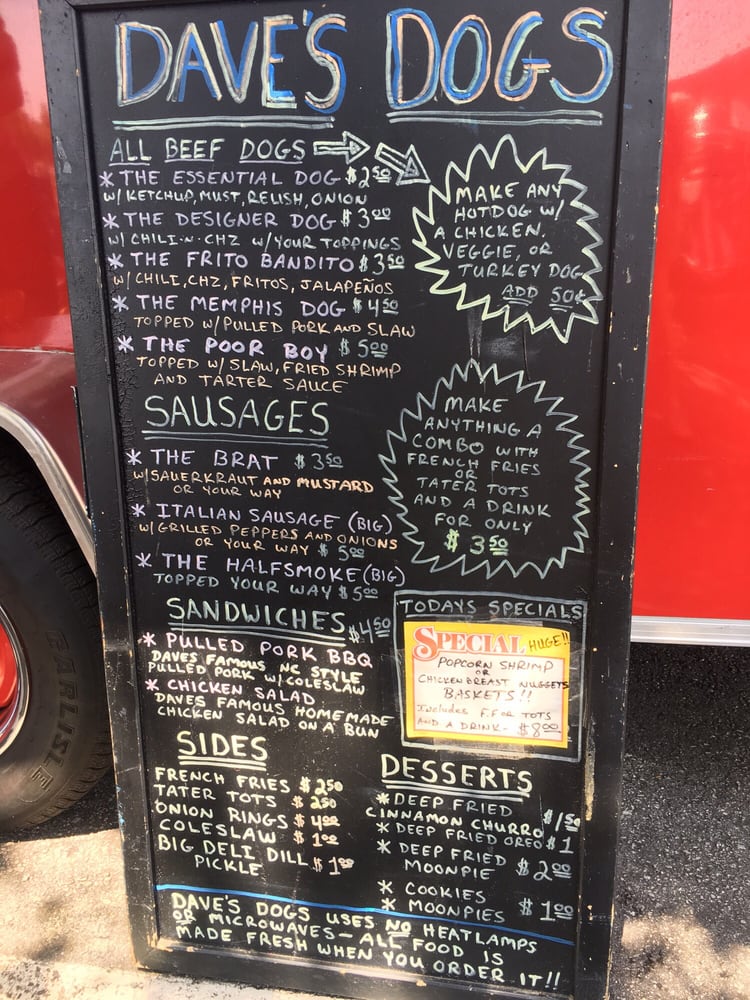 DAVE'S DOGS
ALL BEEF DOGS
* THE ESSENTIAL DOG $2.50
W/ KETCHUP, MUST, RELISH, ONION
* THE DESIGNER DOG $3.00
W/ CHILI-N-CHZ W/YOUR TOPPINGS
* THE FRITO BANDITO $3.50
W/ CHILI, CHZ, FRITOS, JALAPEÑOS
* THE MEMPHIS DOG $4.50
TOPPED W/PULLED PORK AND SLAW
* THE POOR BOY $5.00
TOPPED W/ SLAW, FRIED SHRIMP
AND TARTER SAUCE
MAKE ANY
HOTDOG W/
A CHICKEN.
VEGGIE, OR
TURKEY DOG
ADD 50¢
SAUSAGES
* THE BRAT $3.50
W/SAUERKRAUT AND MUSTARD
OR YOUR WAY
* ITALIAN SAUSAGE (BIG)
W/GRILLED PEPPERS AND ONIONS
OR YOUR WAY $5.00
* THE HALFSMOKE (BIG)
TOPPED YOUR WAY $5.00
MAKE
ANYTHING A
COMBO WITH
FRENCH FRIES
OR
TATER TOTS
AND A DRINK
FOR ONLY
$3.50
SANDWICHES $4.50
* PULLED PORK BBQ
DAVES FAMOUS NC STYLE
PULLED PORK W/ COLESLAW
* CHICKEN SALAD
DAVES FAMOUS HOMEMADE
CHICKEN SALAD ON A BUN
TODAYS SPECIALS
SPECIAL HUGE!!
POPCORN SHRIMP
OR
CHICKEN BREAST NUGGETS
BASKETS!!
Includes F.F OR TOTS
AND A DRINK- $8.00
SIDES
FRENCH FRIES $2.50
TATER TOTS $2.50
ONION RINGS $4.00
COLESLAW $1.00
BIG DELI DILL
PICKLE $1.00
DESSERTS
* DEEP FRIED
CINNAMON CHURRO $1.50
* DEEP FRIED OREO $1
* DEEP FRIED
MOONPIE $2.00
* COOKIES
* MOONPIES $1.00
DAVE'S DOGS USES NO HEATLAMPS
OR MICROWAVES - ALL FOOD IS
MADE FRESH WHEN YOU ORDER IT!!
CARLISLE